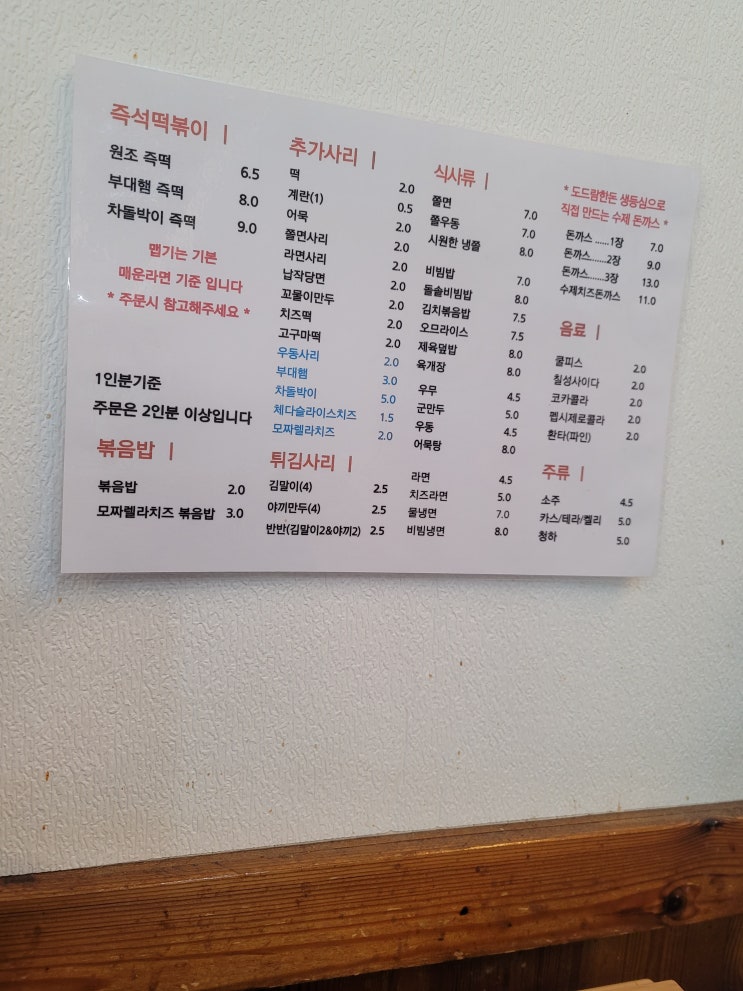 즉석떡볶이 |
원조 즉떡 6.5
부대햄 즉떡 8.0
차돌박이 즉떡 9.0
맵기는 기본
매운라면 기준 입니다
* 주문시 참고해주세요 *
1인분기준
주문은 2인분 이상입니다
볶음밥 |
볶음밥 2.0
모짜렐라치즈 볶음밥 3.0
추가사리 |
떡 2.0
계란(1) 0.5
어묵 2.0
쫄면사리 2.0
라면사리 2.0
납작당면 2.0
꼬물이만두 2.0
치즈떡 2.0
고구마떡 2.0
우동사리 2.0
부대햄 3.0
차돌박이 5.0
체다슬라이스치즈 1.5
모짜렐라치즈 2.0
튀김사리 |
김말이(4) 2.5
야끼만두(4) 2.5
반반(김말이2&야끼2) 2.5
식사류 |
쫄면 7.0
쫄우동 7.0
시원한 냉쫄 8.0
비빔밥 7.0
돌솥비빔밥 8.0
김치볶음밥 7.5
오므라이스 7.5
제육덮밥 8.0
육개장 8.0
우무 4.5
군만두 5.0
우동 4.5
어묵탕 8.0
라면 4.5
치즈라면 5.0
물냉면 7.0
비빔냉면 8.0
* 도드람한돈 생등심으로
직접 만드는 수제 돈까스 *
돈까스 ......1장 7.0
돈까스.......2장 9.0
돈까스.......3장 13.0
수제치즈돈까스 11.0
음료 |
쿨피스 2.0
칠성사이다 2.0
코카콜라 2.0
펩시제로콜라 2.0
환타(파인) 2.0
주류 |
소주 4.5
카스/테라/켈리 5.0
청하 5.0